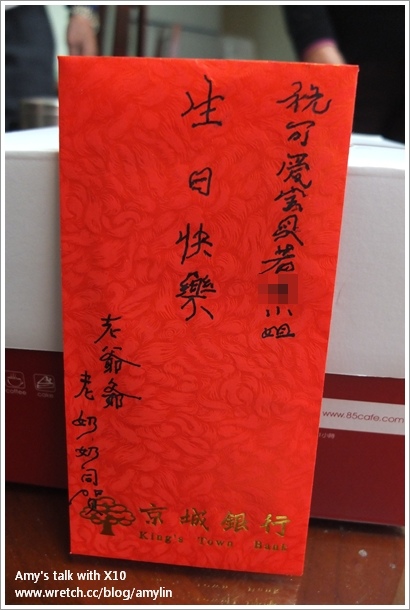 祝可愛寶貝若小姐
生日快樂
老爺爺
老奶奶同賀
京城銀行
King's Town Bank
www.85cafe.com
coffee
Amy's talk with X10
www.wretch.cc/blog/amylin